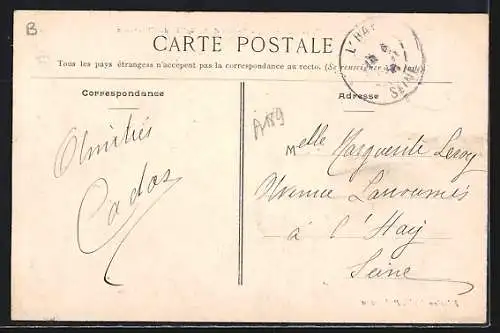 B
CARTE POSTALE
Tous les pays étrangers n'acceptent pas la correspondance au recto. (Se renseigner à la Poste)
Correspondance
Adresse
L'HAY
SEINE
A189
Amitiés
Cados
Melle Marguerite Leroy
Avenue Larroumès
à l'Hay
Seine